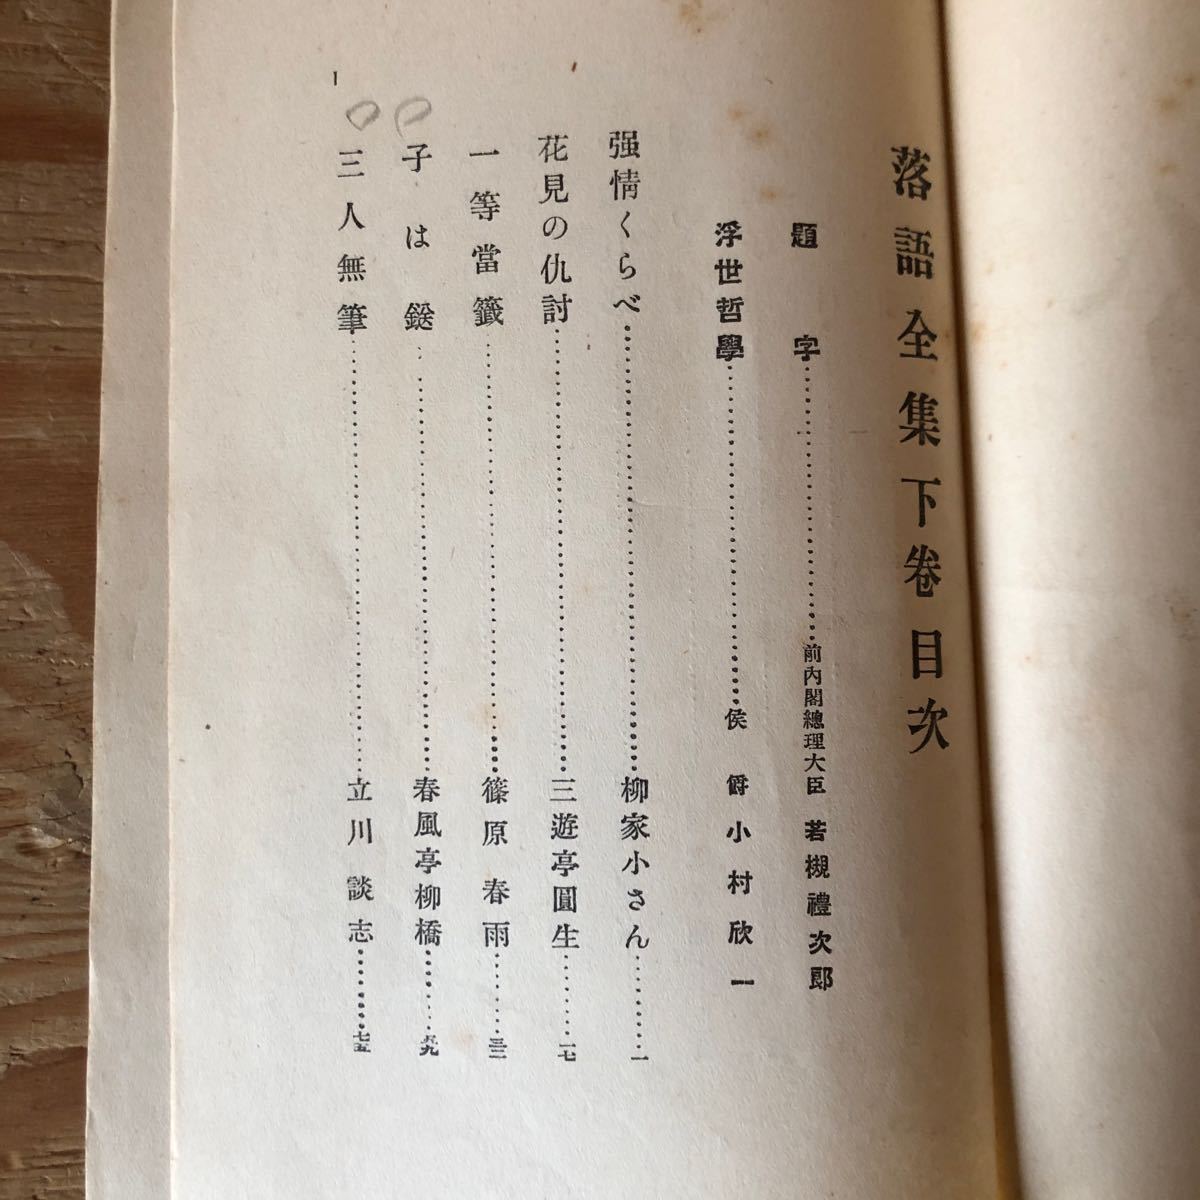 落語全集下卷目次
題字……前內閣總理大臣 若槻禮次郎
浮世哲學……侯爵 小村欣一
强情くらべ……柳家小さん……一
花見の仇討……三遊亭圓生……一七
一等當籤……篠原春雨……三三
子は鎹……春風亭柳橋……五九
三人無筆……立川談志……七五
1